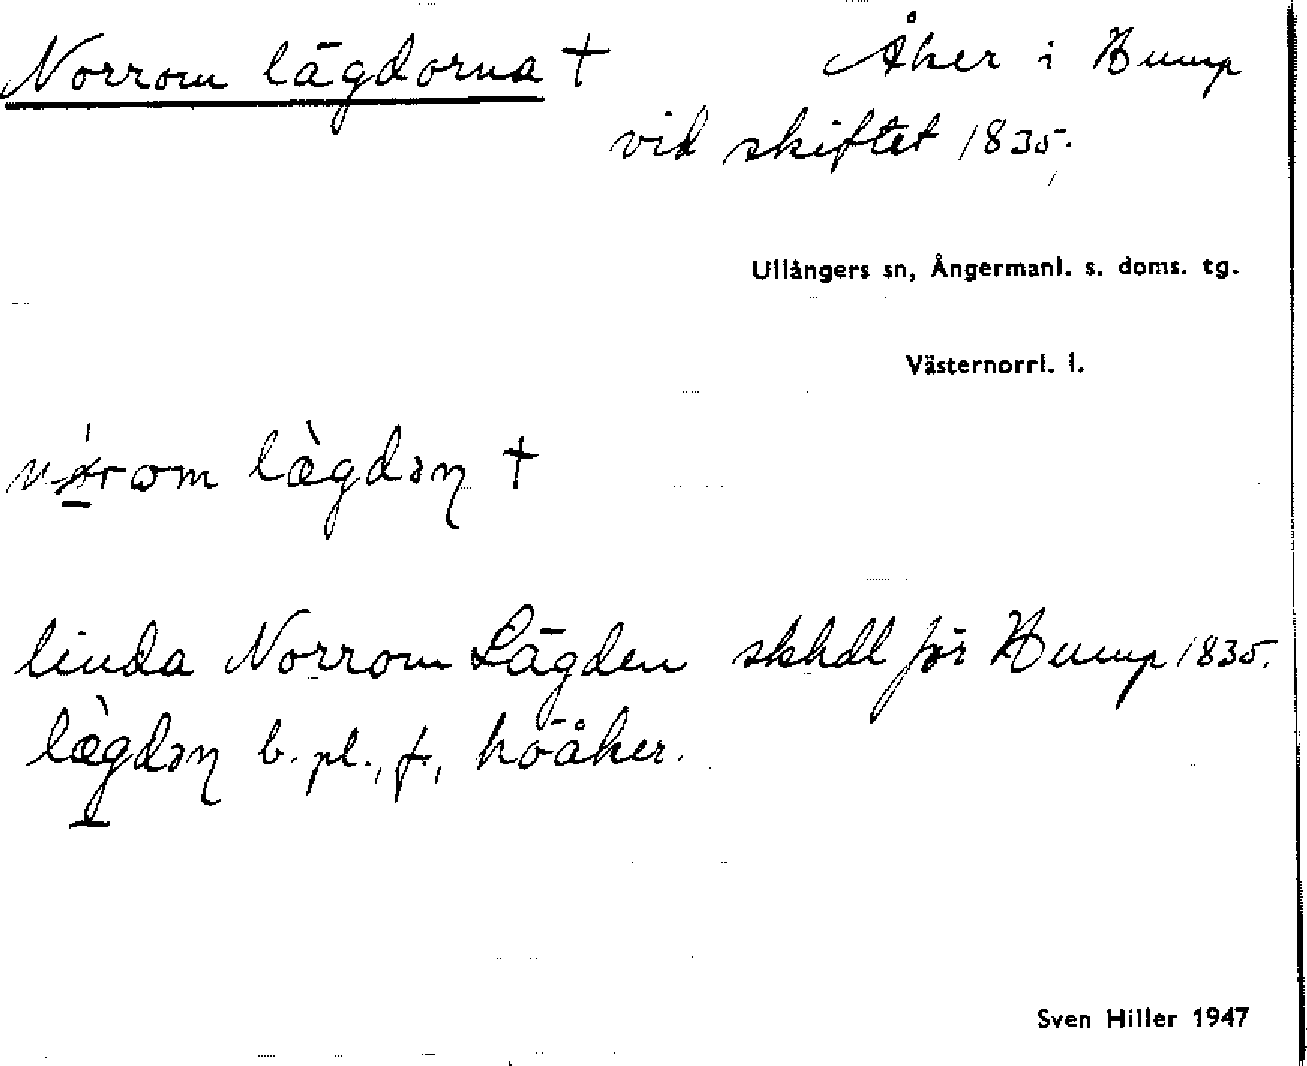 Norrom lägdorna † Åker i Hump
vid skiftet 1835.
Ullångers sn, Ångermanl. s. doms. tg.
Västernorrl. l.
nørom lægdəɳ †
linda Norrom Lägden skhdl för Hump 1835.
lægdəɳ b. pl., f., höåker.
Sven Hiller 1947